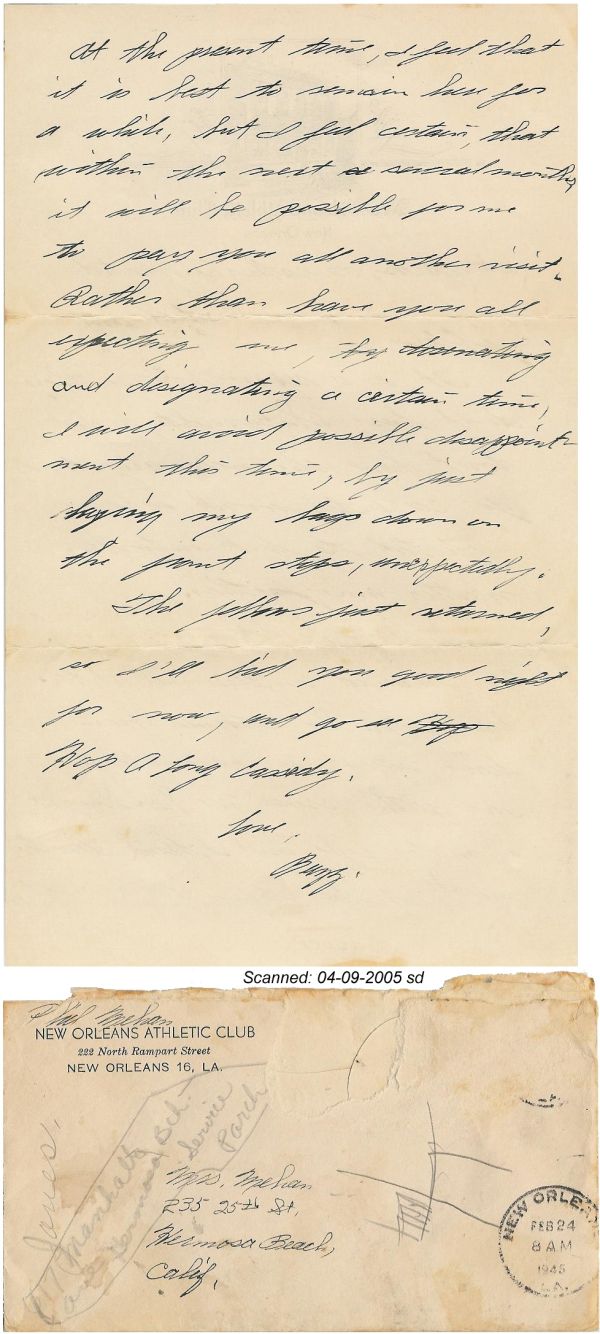 At the present time, I feel that
it is best to remain here for
a while, but I feel certain, that
within the next several months,
it will be possible for me
to pay you all another visit.
Rather than have you all
expecting me, by
and designating a certain time,
I will avoid possible disappoint-
ment this time, by just
laying my bags down on
the front steps, unexpectedly.
The fellows just returned,
so I'll bid you good night
for now, and go see Hop
Hop A long Cassidy.
Love,
Scanned: 04-09-2005 sd
Phil Mehan
NEW ORLEANS ATHLETIC CLUB
222 North Rampart Street
NEW ORLEANS 16, LA.
Jones,
117 Manhatt Bch.
ave Hermosa
Service
Porch
Mrs. Mehan
235 25th St,
Hermosa Beach,
Calif,
NEW ORLEANS
FEB 24
8 AM
1945
LA.